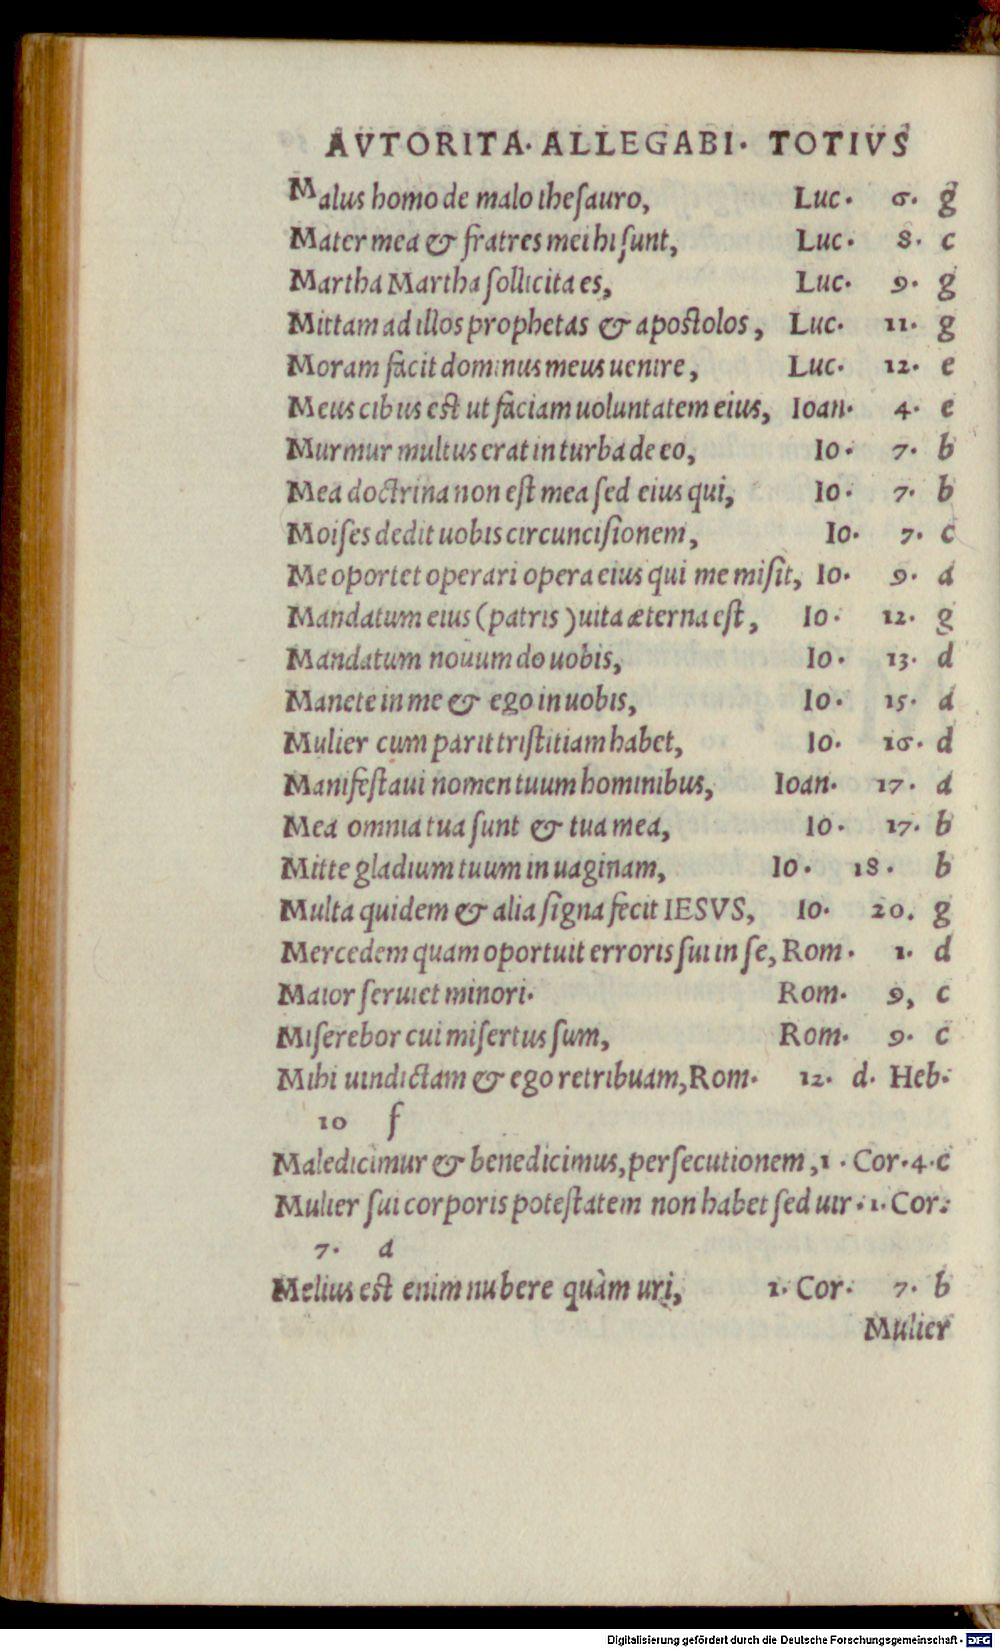 AVTORITA· ALLEGABI· TOTIVS
Malus homo de malo theſauro, Luc· 6· g
Mater mea & fratres mei hi ſunt, Luc· 8· c
Martha Martha ſollicita es, Luc· 9· g
Mittam ad illos prophetas & apoſtolos, Luc· 11· g
Moram facit dominus meus uenire, Luc· 12· e
Meus cibus eſt ut faciam uoluntatem eius, Ioan· 4· e
Murmur multus erat in turba de eo, Io· 7· b
Mea doctrina non eſt mea ſed eius qui, Io· 7· b
Moiſes dedit uobis circunciſionem, Io· 7· c
Me oportet operari opera eius qui me miſit, Io· 9· a
Mandatum eius (patris) uita æterna eſt, Io· 12· g
Mandatum nouum do uobis, Io· 13· d
Manete in me & ego in uobis, Io· 15· a
Mulier cum parit triſtitiam habet, Io· 16· d
Manifeſtaui nomen tuum hominibus, Ioan· 17· a
Mea omnia tua ſunt & tua mea, Io· 17· b
Mitte gladium tuum in uaginam, Io· 18· b
Multa quidem & alia ſigna fecit IESVS, Io· 20. g
Mercedem quam oportuit erroris ſui in ſe, Rom· 1· d
Maior ſeruiet minori· Rom· 9, c
Miſerebor cui miſertus ſum, Rom· 9· c
Mihi uindictam & ego retribuam, Rom· 12· d. Heb·
10 f
Maledicimur & benedicimus, perſecutionem, 1· Cor·4·c
Mulier ſui corporis poteſtatem non habet ſed uir· 1· Cor·
7· a
Melius eſt enim nubere quàm uri, 1· Cor· 7· b
Mulier
Digitalisierung gefördert durch die Deutsche Forschungsgemeinschaft - DFG